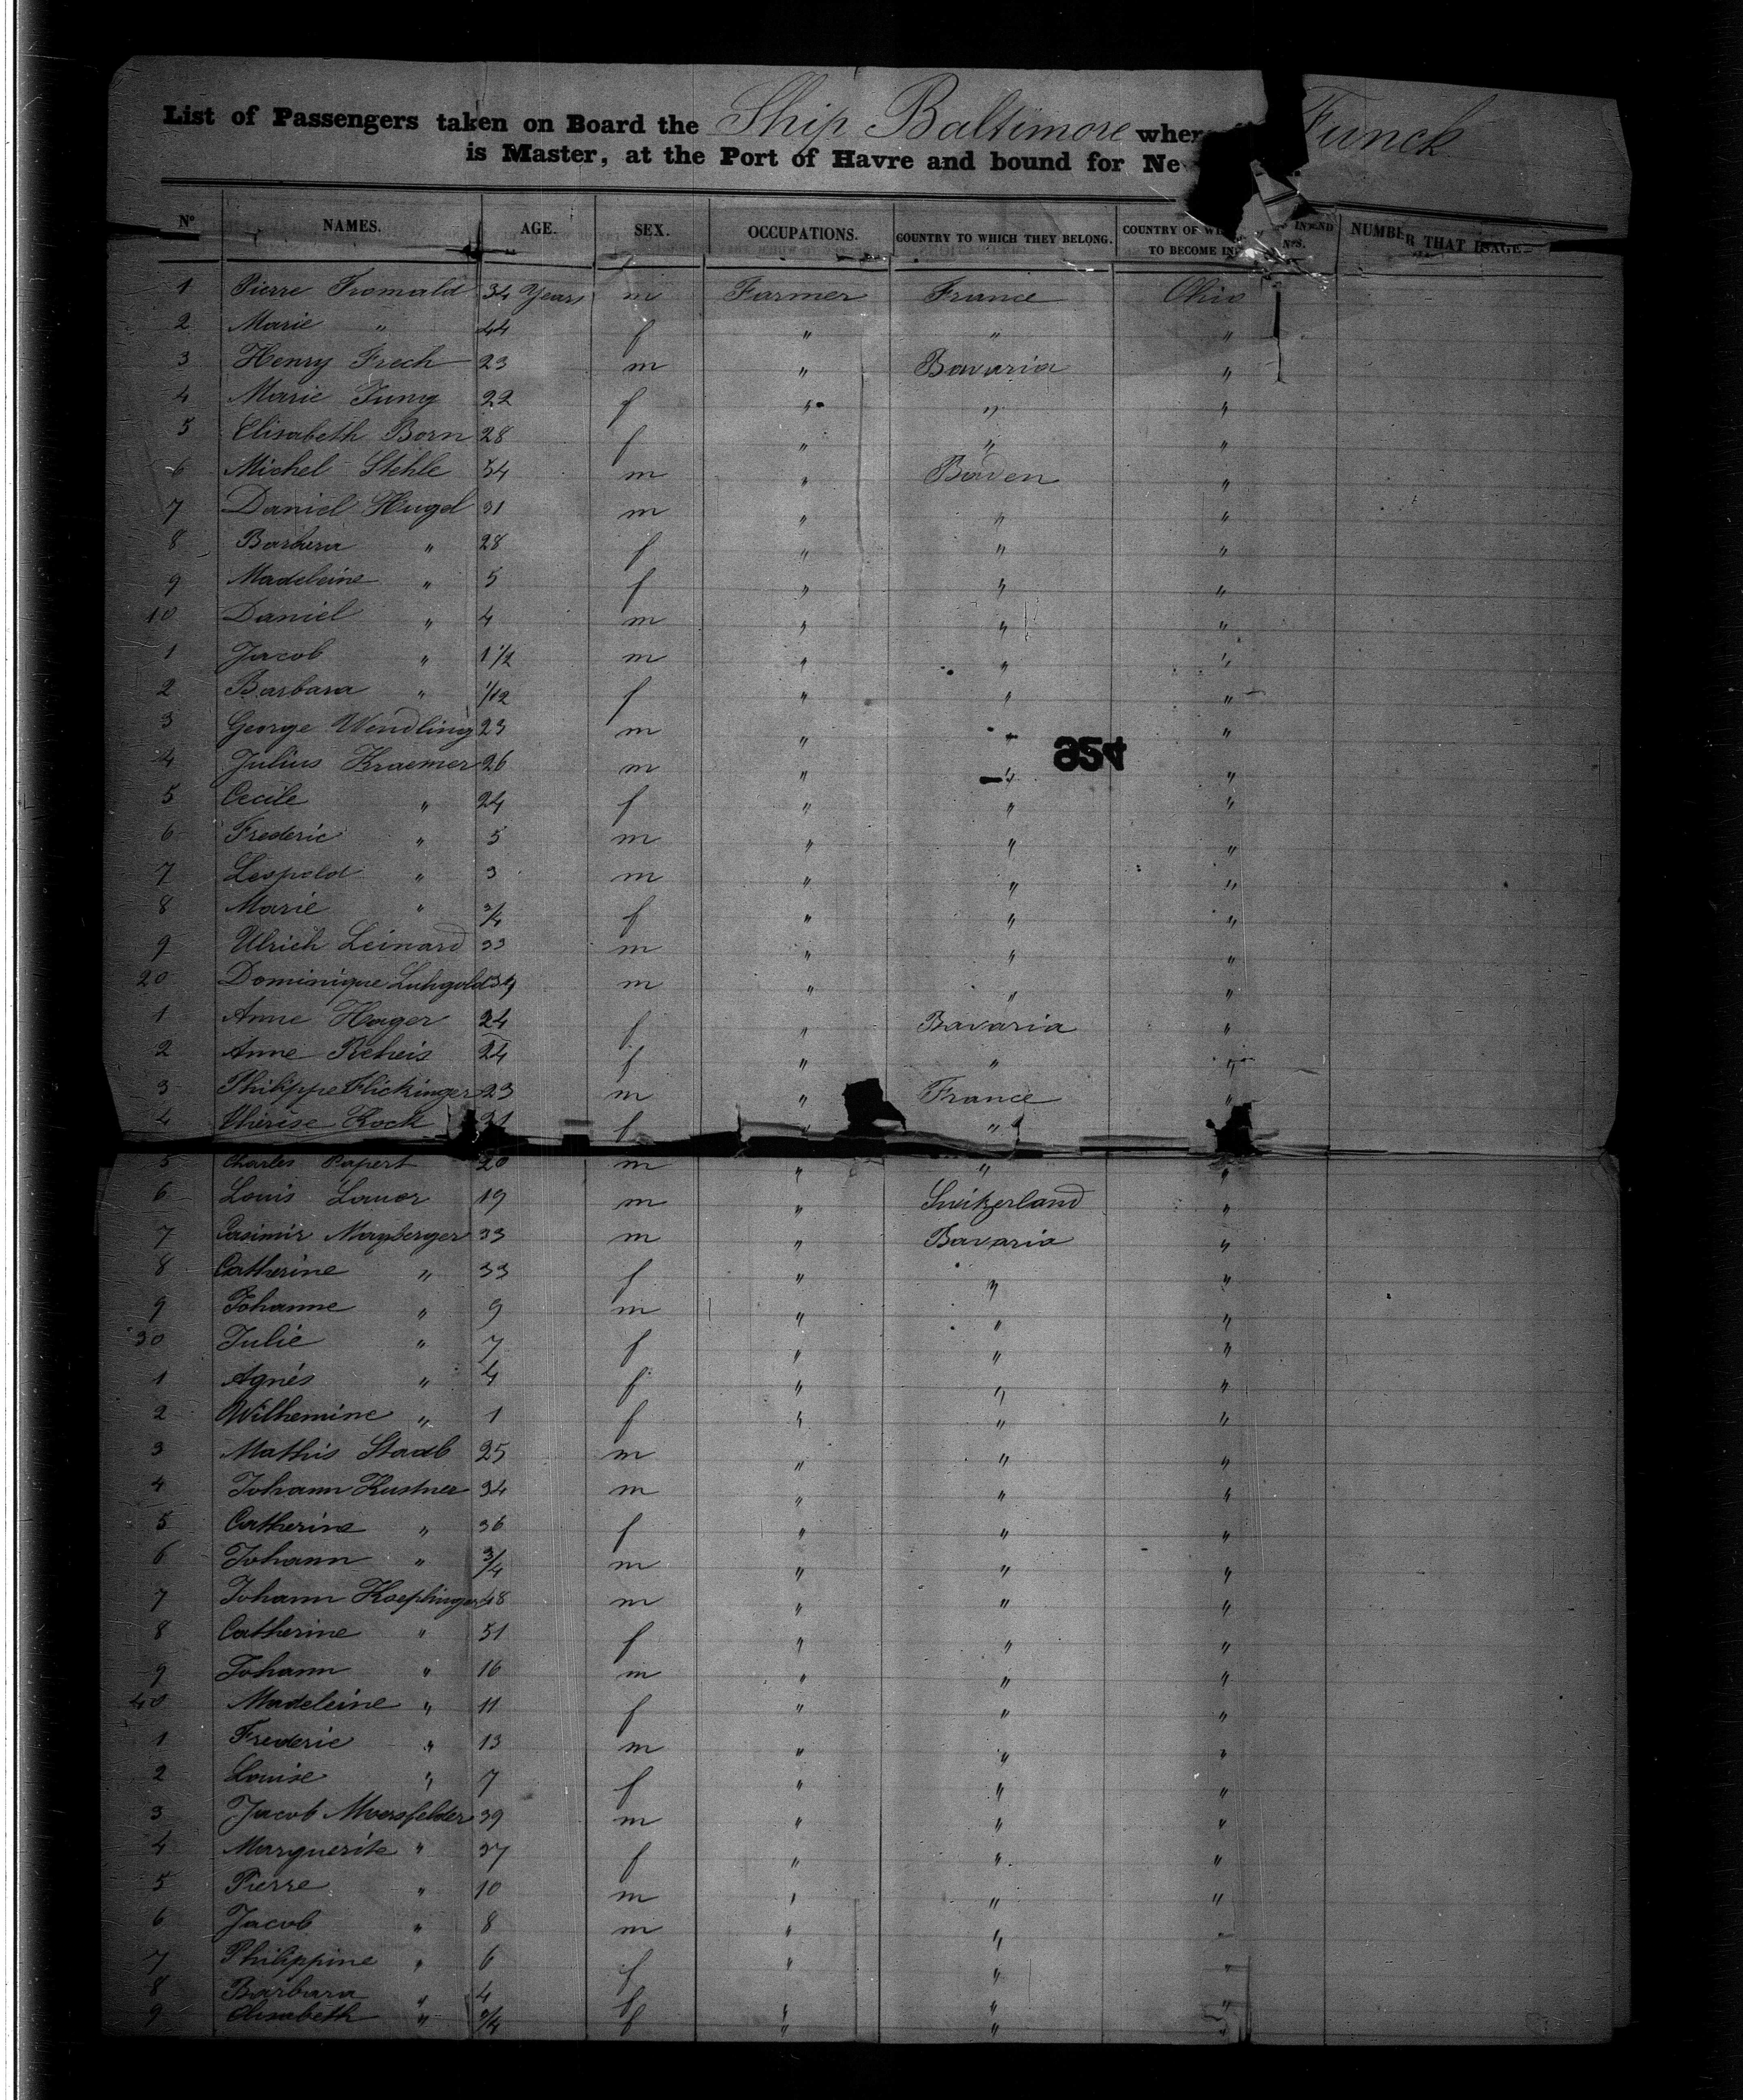 List of Passengers taken on Board the Ship Baltimore Funck
is Master, at the Port of Havre and bound for Ne
Nº NAMES. AGE. SEX. OCCUPATIONS. COUNTRY TO WHICH THEY BELONG. COUNTRY OF INTEND TO BECOME NUMBER THAT
1 Pierre Fromald 34 Years m Farmer France Ohio
2 Marie " 44 f " " "
3 Henry Frech 23 m " Bavaria "
4 Marie Jung 22 f " " "
5 Elisabeth Born 28 f " " "
6 Michel Stehle 34 m " Baden "
7 Daniel Hugel 31 m " " "
8 Barbera " 28 f " " "
9 Madeleine " 5 f " " "
10 Daniel " 4 m " " "
1 Jacob " 1 1/2 m " " "
2 Barbara " 1/12 f " " "
3 George Wendling 23 m " " "
854
4 Julius Kraemer 26 m " " "
5 Cecile " 24 f " " "
6 Frederic " 5 m " " "
7 Leopold " 3 m " " "
8 Marie " 3/4 f " " "
9 Ulrich Leinard 33 m " " "
20 Dominique m " " "
1 Anne Hager 24 f " Bavaria "
2 Anne Reheis 24 f " " "
3 Philippe Flickinger 23 m " France "
4 Thérèse Kock f " "
5 Charles Papert 20 m " " "
6 Louis 19 m " Switzerland "
7 Casimir Mayberger 33 m " Bavaria "
8 Catherine " 33 f " " "
9 Johanne " 9 m " " "
30 Julie " 7 f " " "
1 Agnés " 4 f " " "
2 Wilhemine " 1 f " " "
3 Mathis Staab 25 m " " "
4 Johann Kustner 34 m " " "
5 Catherine " 36 f " " "
6 Johann " 3/4 m " " "
7 Johann Koeplinger 48 m " " "
8 Catherine " 51 f " " "
9 Johann " 16 m " " "
40 Madeleine " 11 f " " "
1 Frederic " 13 m " " "
2 Louise " 7 f " " "
3 Jacob Moersfelder 39 m " " "
4 Marguerite " 37 f " " "
5 Pierre " 10 m " " "
6 Jacob " 8 m " " "
7 Philippine " 6 f " " "
8 Barbara " 4 f " " "
9 Elisabeth " 3/4 f " " "